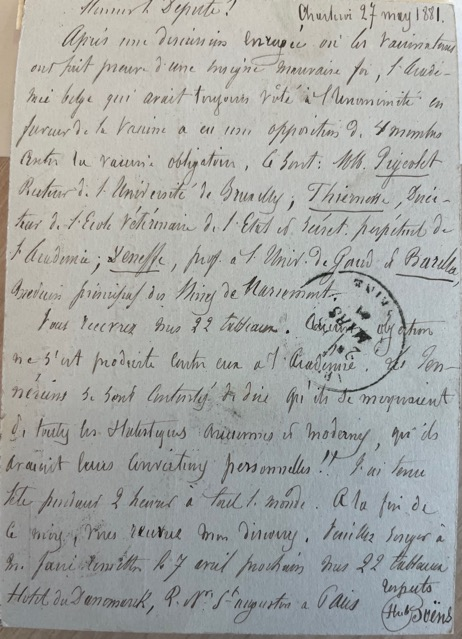 Monsieur le Député! Charleroi 27 mars 1881.
Après une discussion enragée où les vaccinateurs
ont fait preuve d'une insigne mauvaise foi, l'Acadé-
mie belge qui avait toujours voté à l'unanimité en
faveur de la vaccine a eu une opposition de 4 membres
contre la vaccine obligatoire. Ce sont: MM. Pigeolet
Recteur de l'Université de Bruxelles; Thiernesse, Direc-
teur de l'Ecole Vétérinaire de l'Etat et Secrét. perpétuel de
l'Académie; Deneffe, prof. à l'Univ. de Gand & Barella,
Médecin principal des Mines de Mariemont.
Vous recevrez mes 22 tableaux. Aucune objection
ne s'est produite contre eux à l'Académie. Les
médecins se sont contentés de dire qu'ils se moquaient
de toutes les statistiques anciennes et modernes, qu'ils
avaient leurs convictions personnelles!! J'ai tenu
tête pendant 2 heures à tout le monde. A la fin de
ce mois, vous recevrez mon discours. Veuillez songer à
faire remettre le 7 avril prochain mes 22 tableaux
Hotel du Danemarck, R. Nve St Augustin à Paris
respects
Hub. Boëns